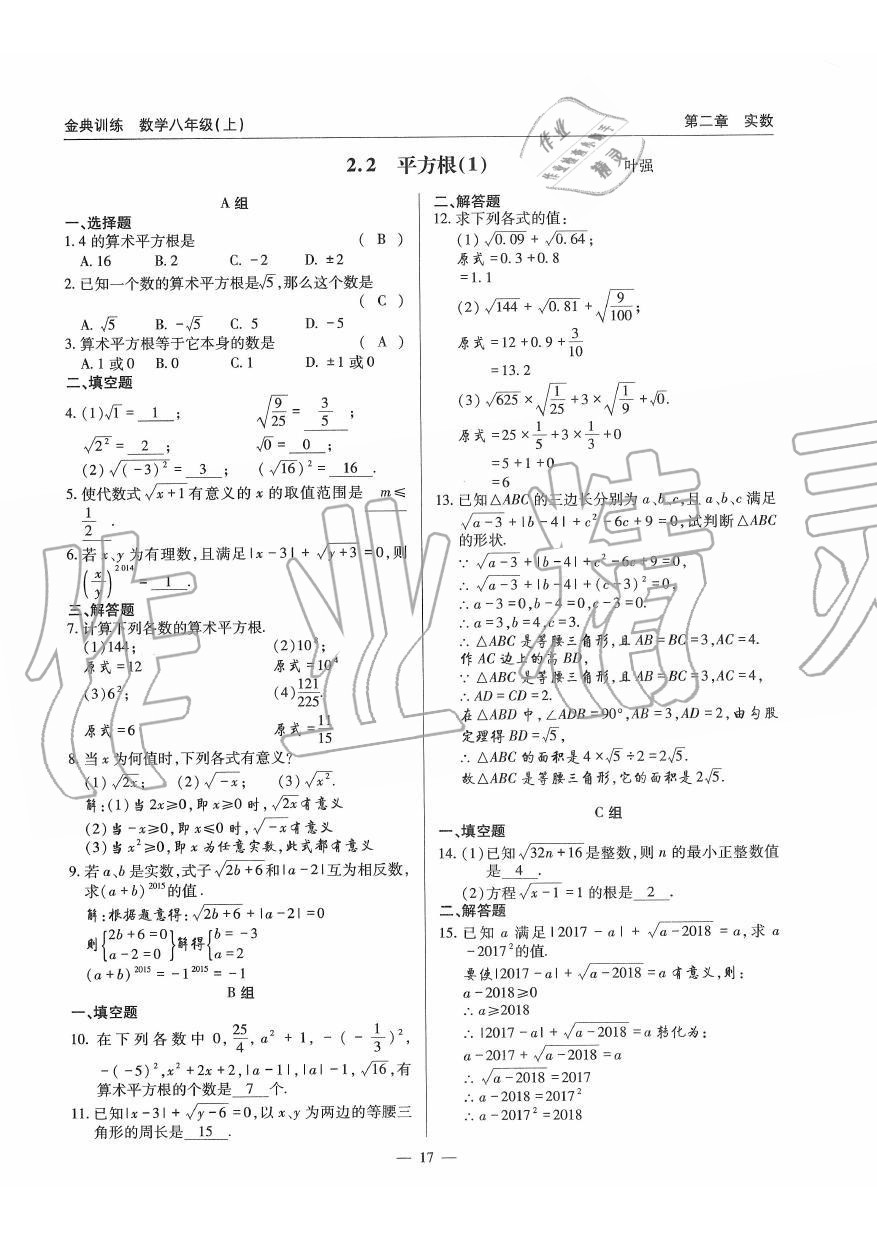 金典训练 数学八年级(上)
第二章 实数
2.2 平方根(1)
叶强
A组
一、选择题
1. 4的算术平方根是 ( B )
A. 16 B. 2 C. -2 D. ±2
2. 已知一个数的算术平方根是√5,那么这个数是
( C )
A. √5 B. -√5 C. 5 D. -5
3. 算术平方根等于它本身的数是 ( A )
A. 1或0 B. 0 C. 1 D. ±1或0
二、填空题
4. (1)√1 = 1 ; √(9/25) = 3/5 ;
√(2²) = 2 ; √0 = 0 ;
(2)√((-3)²) = 3 ; (√16)² = 16 .
5. 使代数式√(x+1)有意义的x的取值范围是 m≤
1/2 .
6. 若x、y为有理数,且满足|x-3|+√(y+3)=0,则
(x/y)^2014 = 1 .
三、解答题
7. 计算下列各数的算术平方根.
(1)144; (2)10⁸;
原式=12 原式=10⁴
(3)6²; (4)121/225.
原式=6 原式=11/15
8. 当x为何值时,下列各式有意义?
(1)√(2x); (2)√(-x); (3)√(x²).
解:(1)当2x≥0,即x≥0时,√(2x)有意义
(2)当-x≥0,即x≤0时,√(-x)有意义
(3)当x²≥0,即x为任意实数,此式都有意义
9. 若a、b是实数,式子√(2b+6)和|a-2|互为相反数,
求(a+b)^2015的值.
解:根据题意得:√(2b+6)+|a-2|=0
则{2b+6=0 a-2=0}解得{b=-3 a=2
(a+b)^2015=-1^2015=-1
B组
一、填空题
10. 在下列各数中0,25/4,a²+1,-(-1/3)²,
-(-5)²,x²+2x+2,|a-1|,|a|-1,√16,有
算术平方根的个数是 7 个.
11. 已知|x-3|+√(y-6)=0,以x、y为两边的等腰三
角形的周长是 15 .
二、解答题
12. 求下列各式的值:
(1)√0.09+√0.64;
原式=0.3+0.8
=1.1
(2)√144+√0.81+√(9/100);
原式=12+0.9+3/10
=13.2
(3)√625×√(1/25)+3×√(1/9)+√0.
原式=25×1/5+3×1/3+0
=5+1+0
=6
13. 已知△ABC的三边长分别为a、b、c,且a、b、c满足
√(a-3)+|b-4|+c²-6c+9=0,试判断△ABC
的形状.
∵√(a-3)+|b-4|+c²-6c+9=0,
∴√(a-3)+|b-4|+(c-3)²=0,
∴a-3=0,b-4=0,c-3=0.
∴a=3,b=4,c=3.
∴△ABC是等腰三角形,且AB=BC=3,AC=4.
作AC边上的高BD,
∵△ABC是等腰三角形,且AB=BC=3,AC=4,
∴AD=CD=2.
在△ABD中,∠ADB=90°,AB=3,AD=2,由勾股
定理得BD=√5,
∴△ABC的面积是4×√5÷2=2√5.
故△ABC是等腰三角形,它的面积是2√5.
C组
一、填空题
14. (1)已知√(32n+16)是整数,则n的最小正整数值
是 4 .
(2)方程√(x-1)=1的根是 2 .
二、解答题
15. 已知a满足|2017-a|+√(a-2018)=a,求a
-2017²的值.
要使|2017-a|+√(a-2018)=a有意义,则:
a-2018≥0
∴a≥2018
∴|2017-a|+√(a-2018)=a转化为:
a-2017+√(a-2018)=a
∴√(a-2018)=2017
∴a-2018=2017²
∴a-2017²=2018
— 17 —
作业精灵